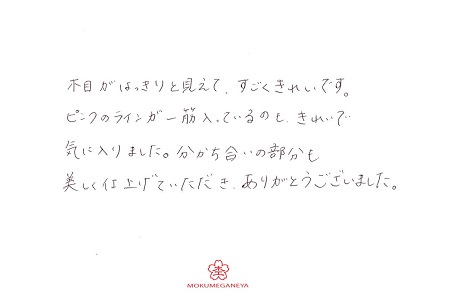 木目がはっきりと見えて、すごくきれいです。
ピンクのラインが一筋入っているのも、きれいで
気に入りました。分かち合いの部分も
美しく仕上げていただき、ありがとうございました。
MOKUMEGANEYA